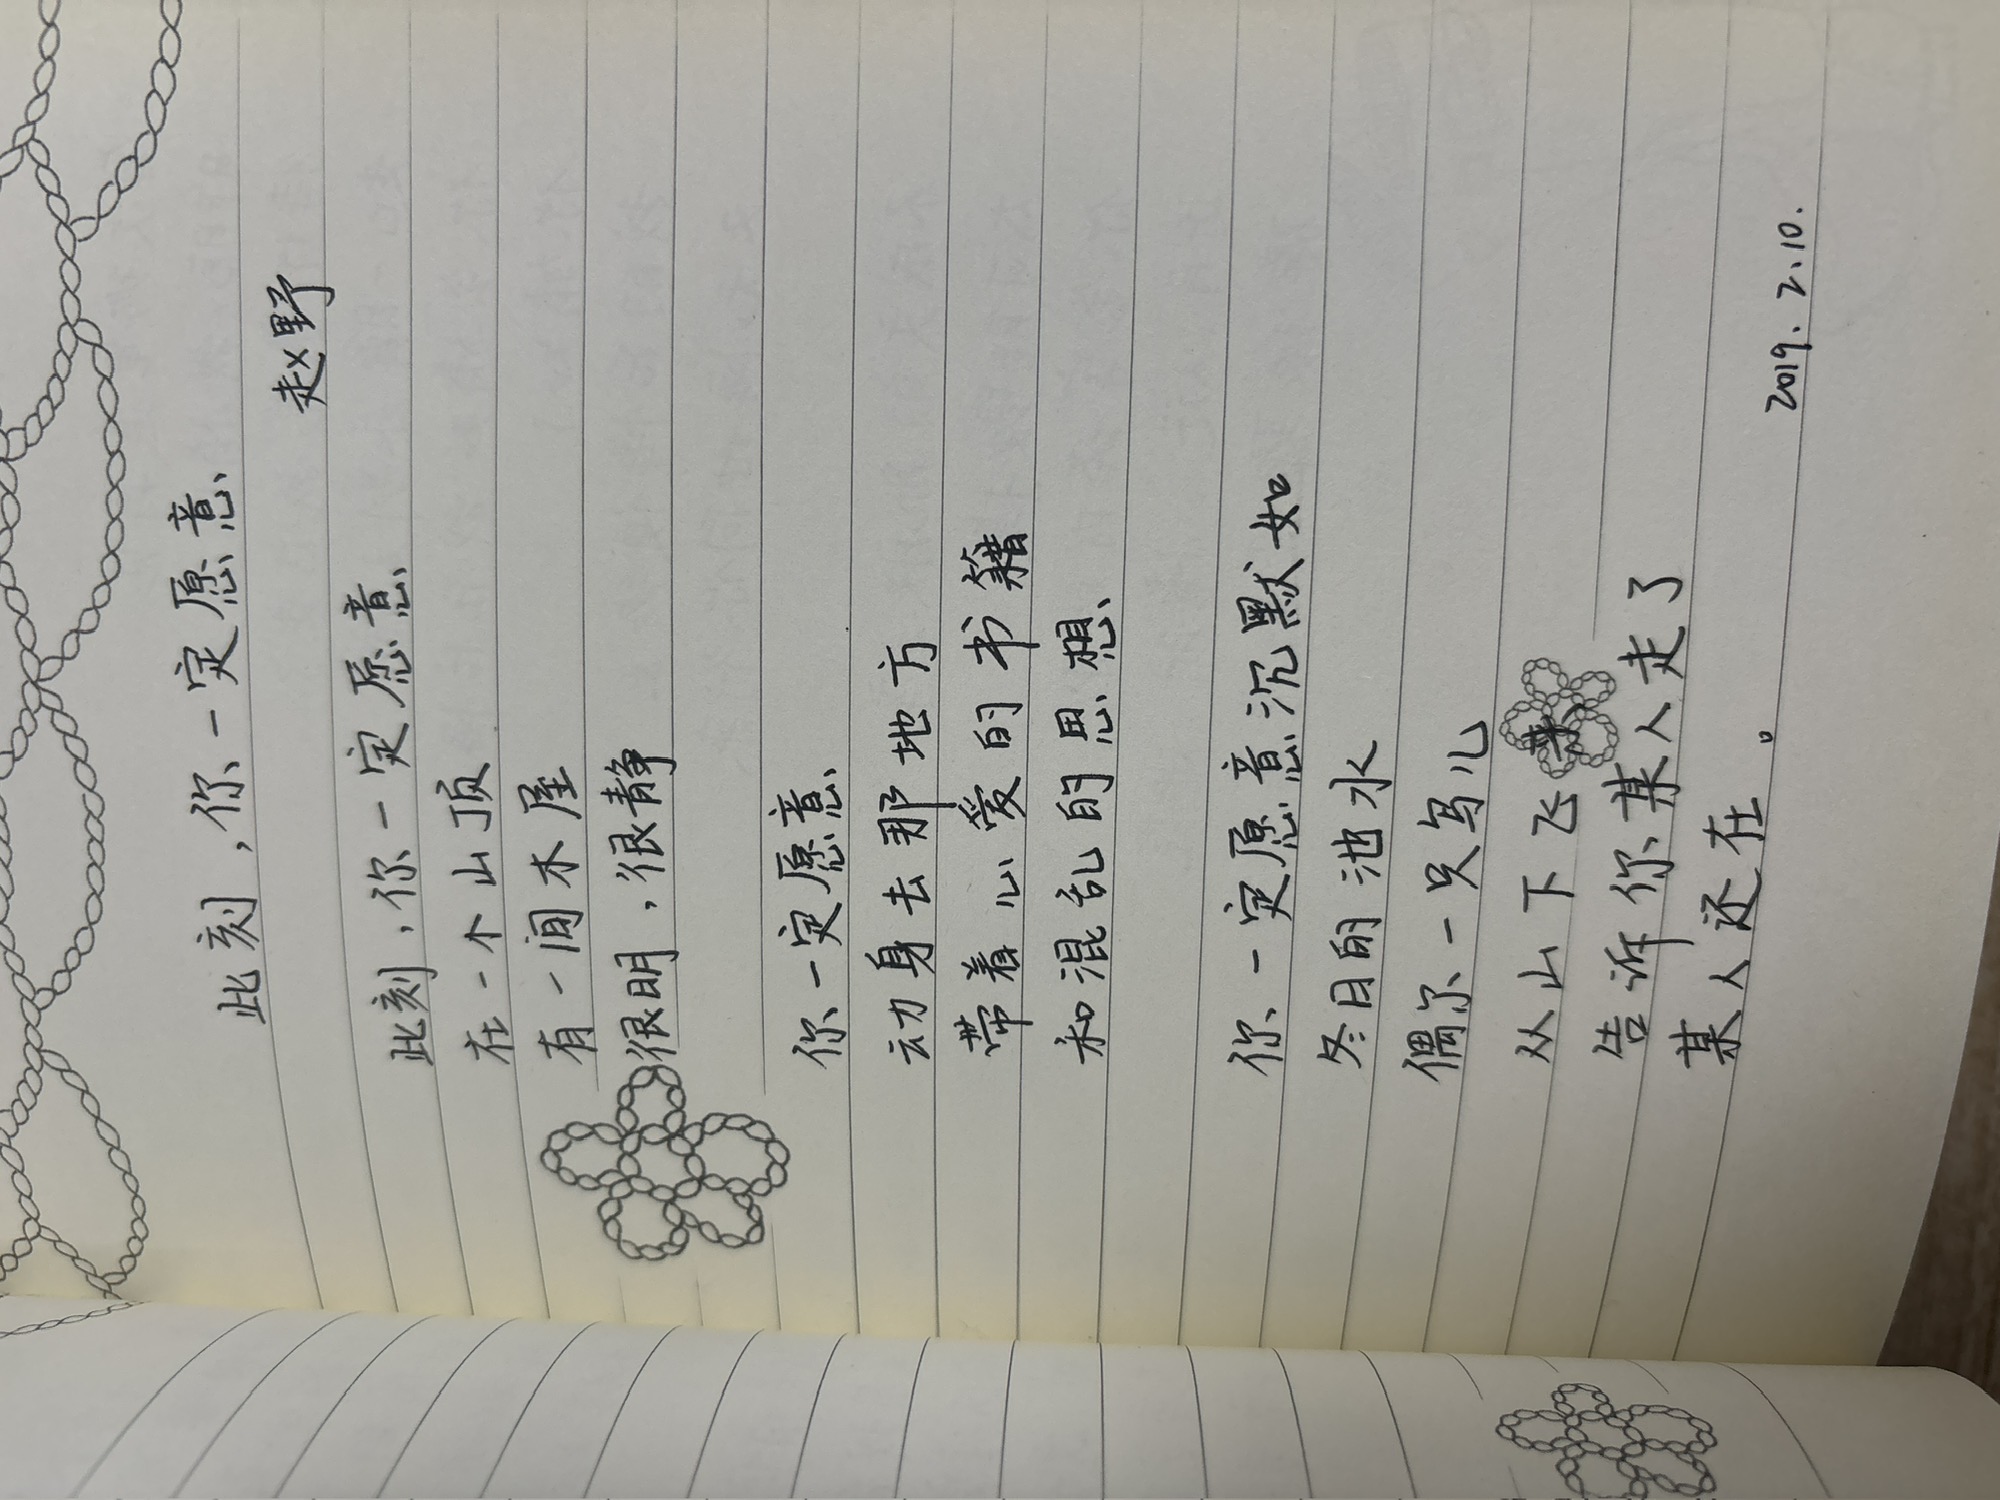 此刻，你一定愿意
赵野
此刻，你一定愿意
在一个山顶
有一间木屋
很明，很静
你一定愿意
动身去那地方
带着心爱的书籍
和混乱的思想
你一定愿意沉默如
冬日的池水
偶尔一只鸟儿
从山下飞来
告诉你某人走了
某人还在。
2019.2.10.